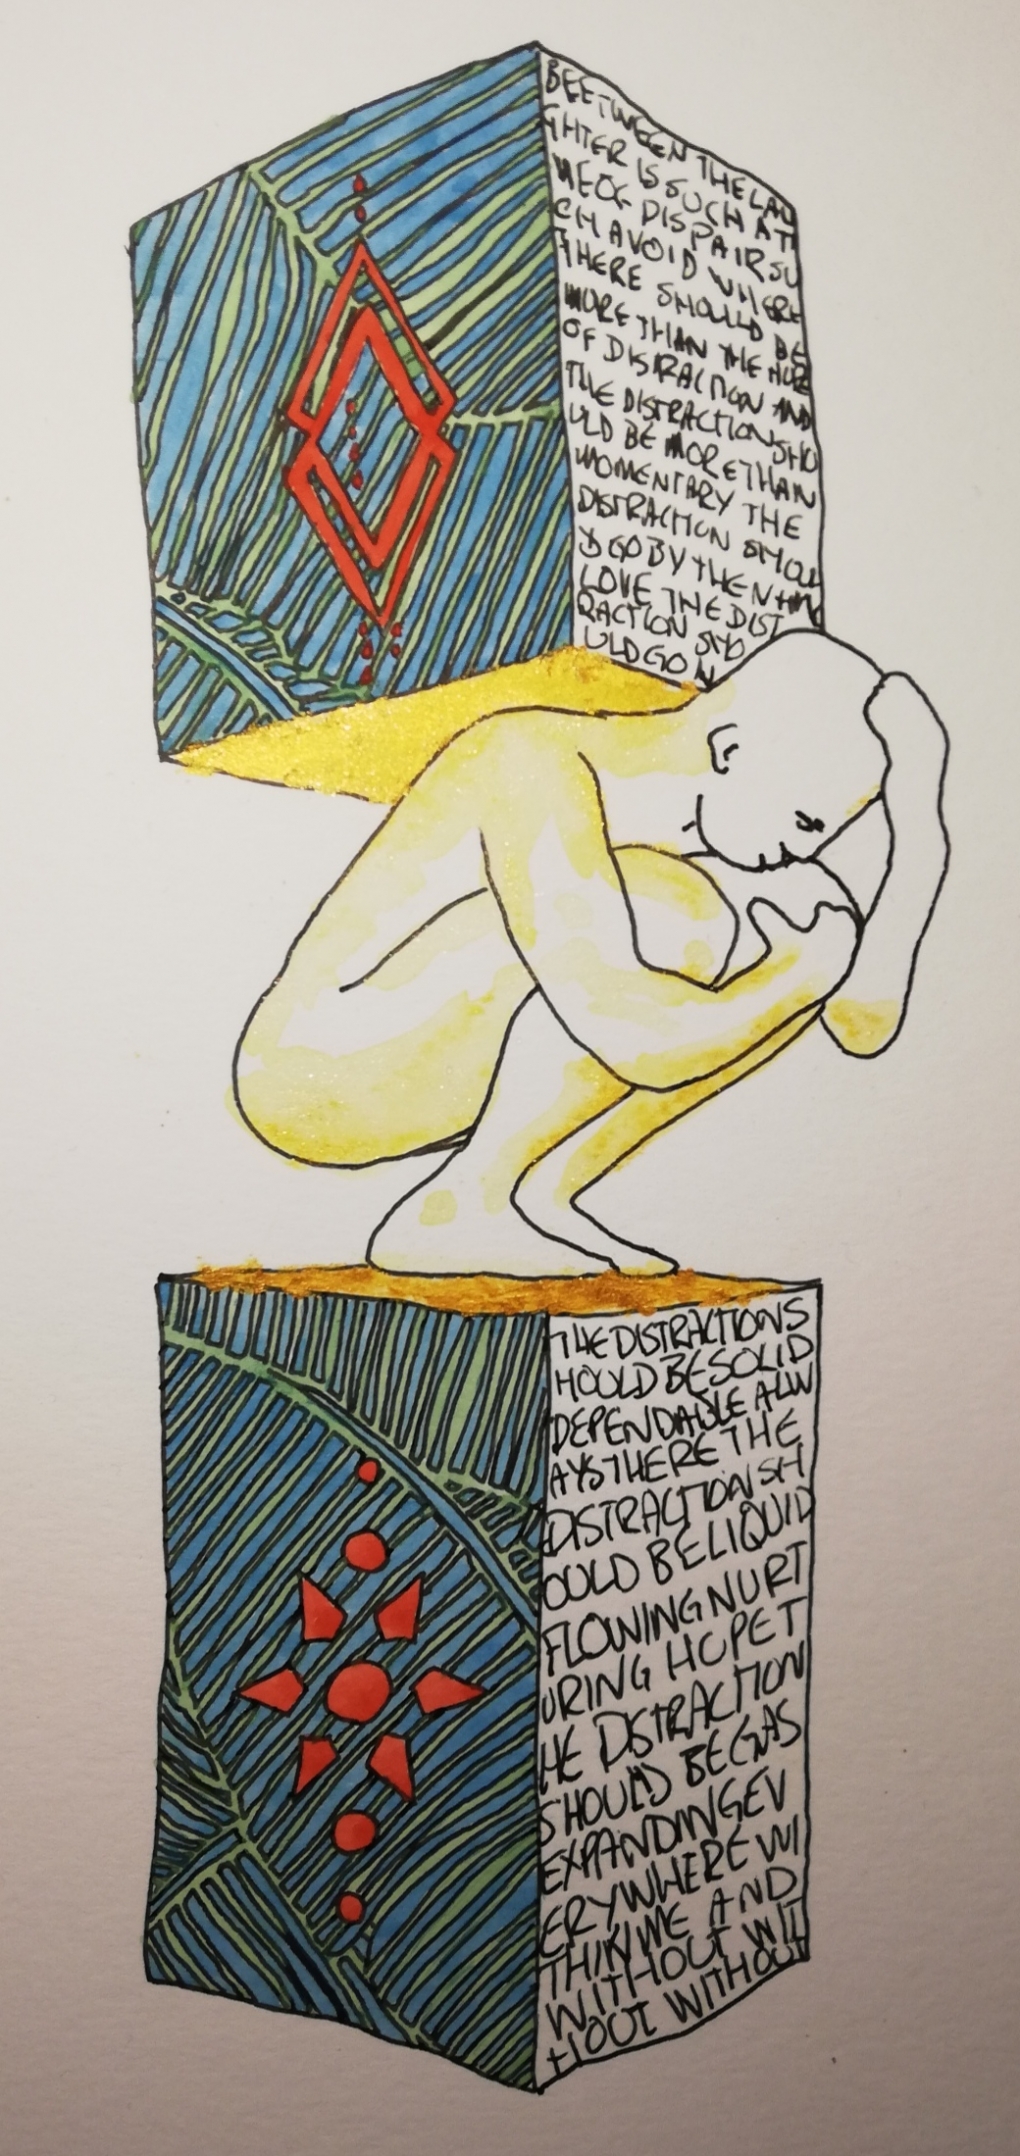 BEETWEEN THE LAU
GHTER IS SUCH A TI
ME OF DISPAIR SU
CH A VOID WHERE
THERE SHOULD BE
MORE THAN THE
OF DISTRACTION AND
THE DISTRACTION SHO
ULD BE MORE THAN
MOMENTARY THE
DISTRACTION SHOUL
D GO BY THE
LOVE THE DIST
RACTION SHO
ULD GO
THE DISTRACTIONS
HOULD BE SOLID
DEPENDABLE ALW
AYS THERE THE
DISTRACTION SH
OULD BE LIQUID
FLOWING NURT
URING HOPE T
HE DISTRACTION
SHOULD BE GAS
EXPANDING EV
ERYWHERE WI
THIN ME AND
WITHOUT WIT
HOUT WITHOUT